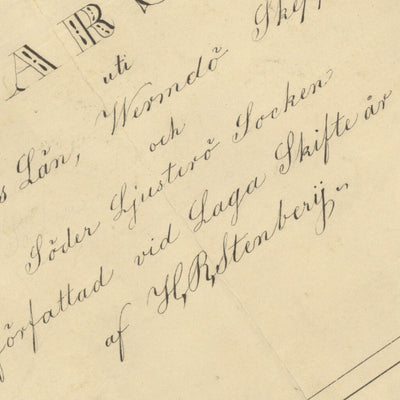 AR
uti
Län, Wermdö
och
Söder Ljusterö Socken
författad vid Laga Skifte år
af H. R. Stenberg.